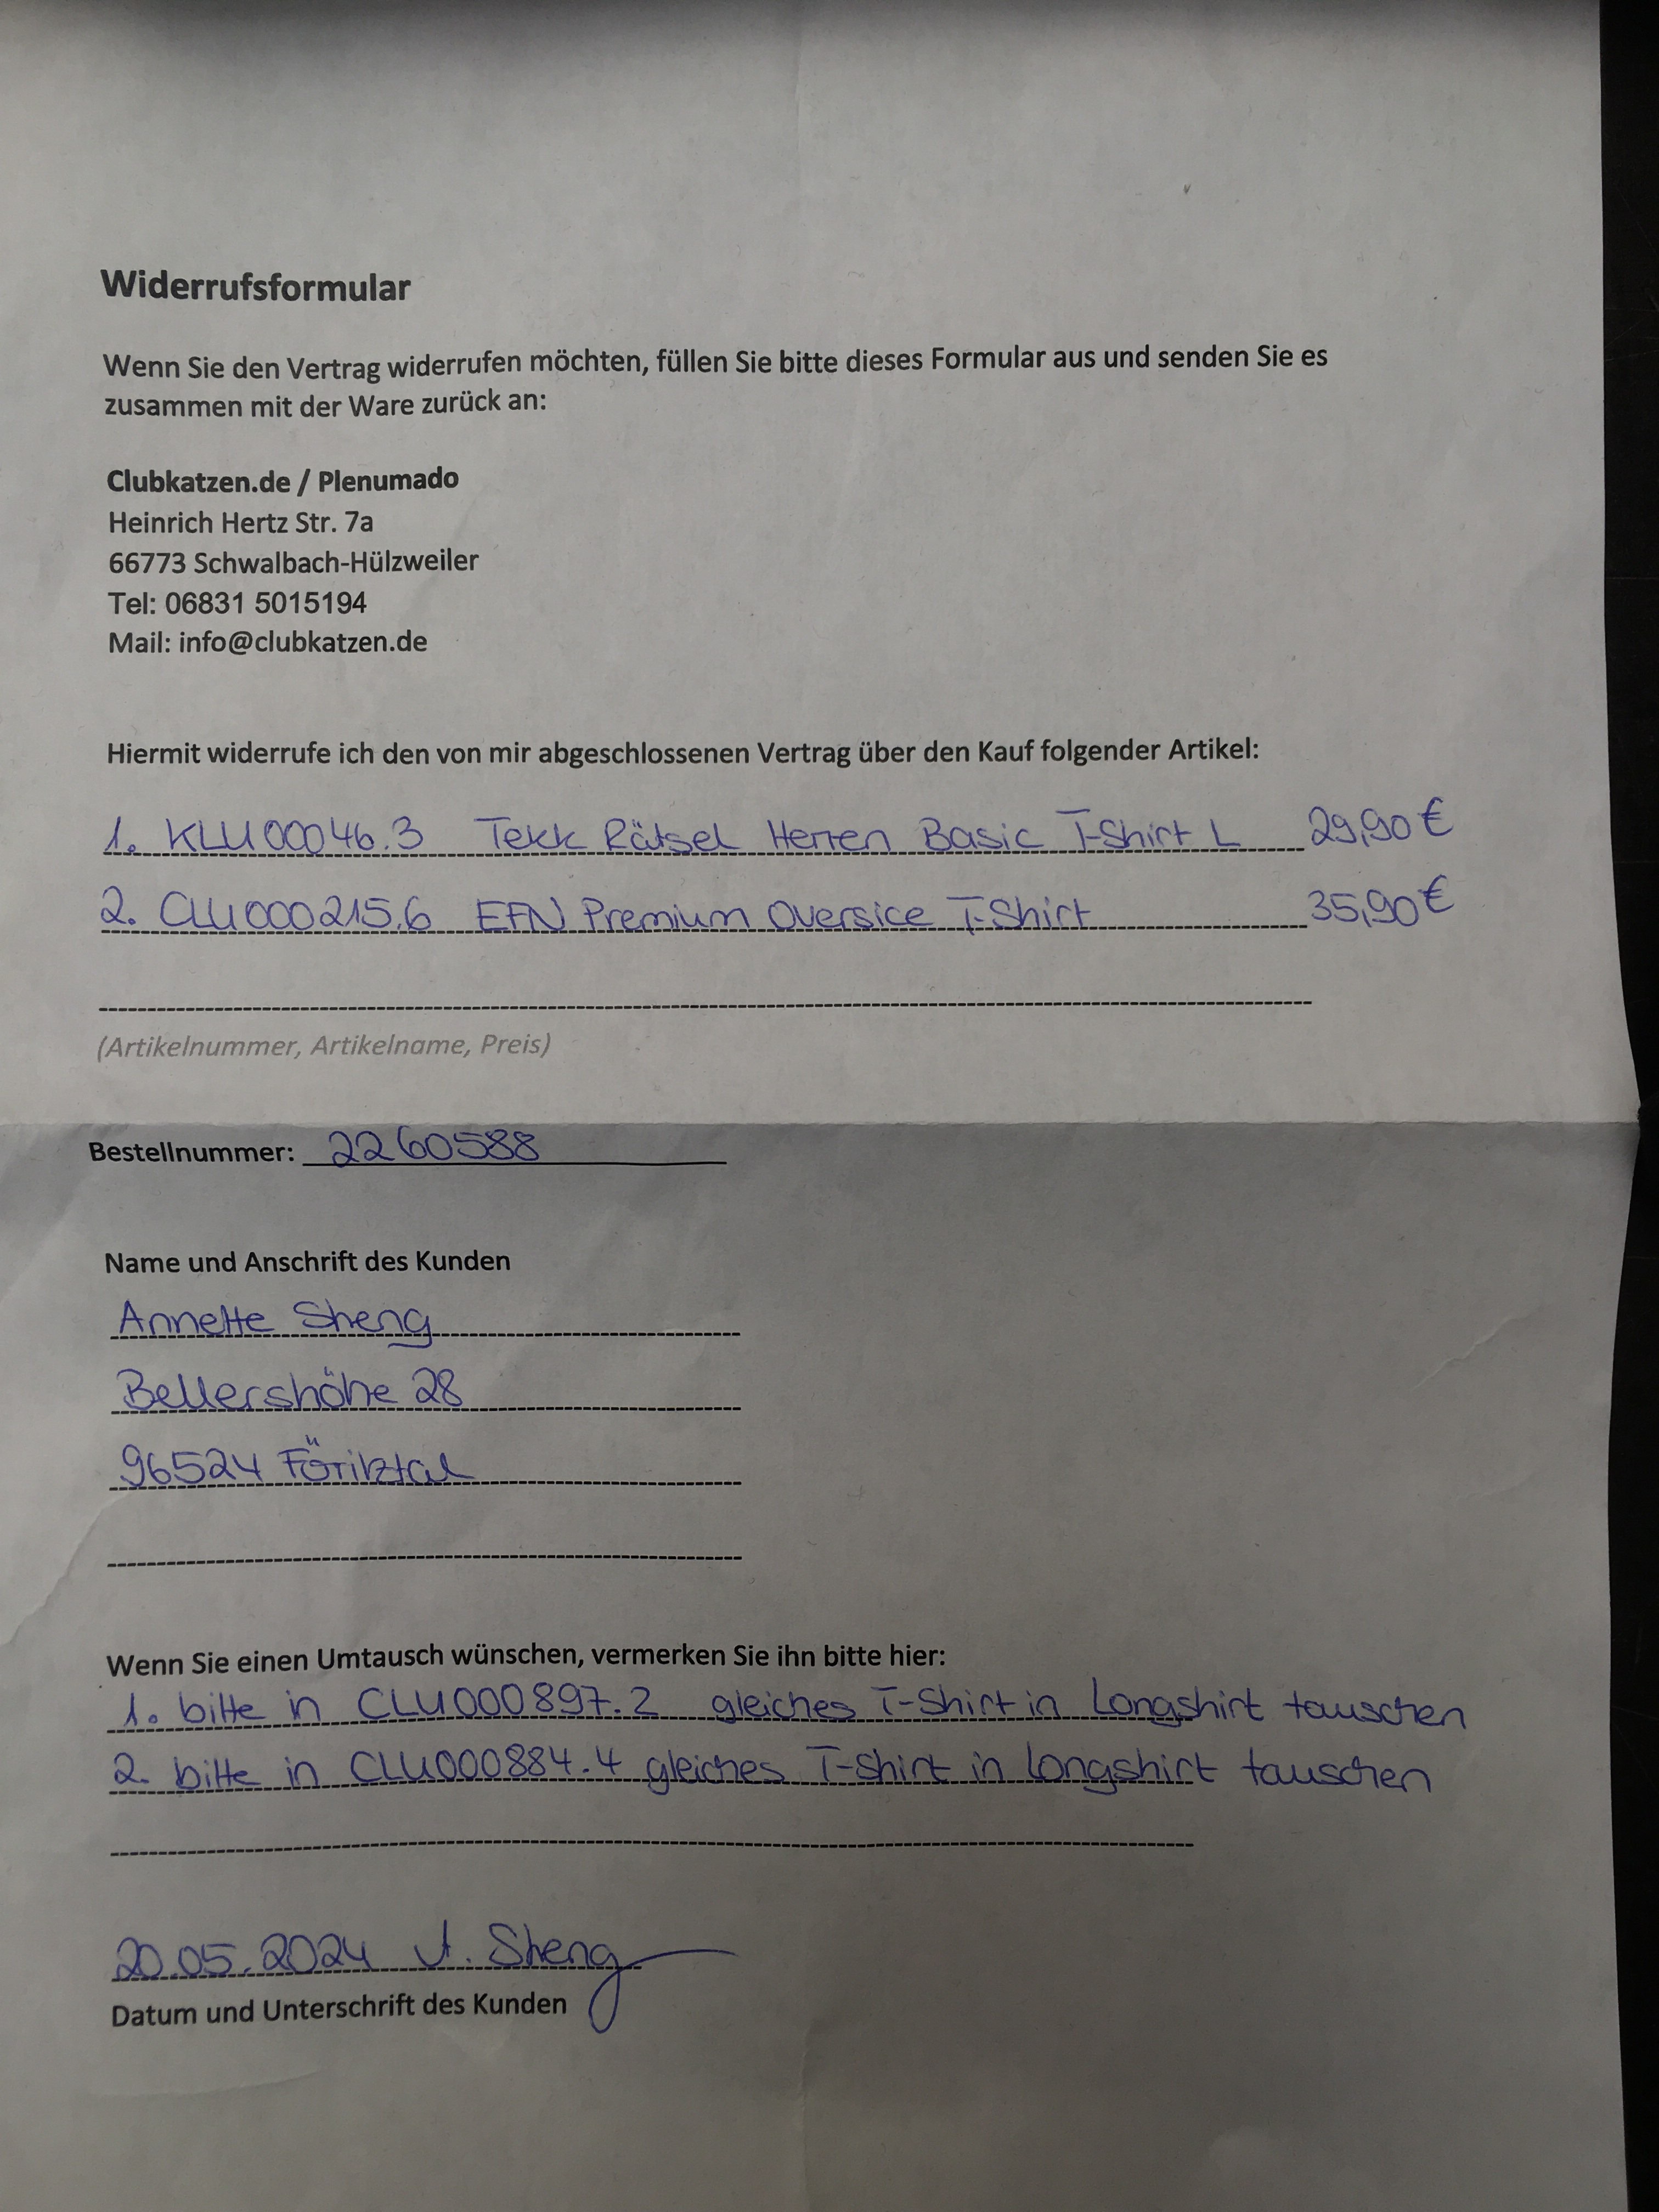 Widerrufsformular
Wenn Sie den Vertrag widerrufen möchten, füllen Sie bitte dieses Formular aus und senden Sie es
zusammen mit der Ware zurück an:
Clubkatzen.de / Plenumado
Heinrich Hertz Str. 7a
66773 Schwalbach-Hülzweiler
Tel: 06831 5015194
Mail: info@clubkatzen.de
Hiermit widerrufe ich den von mir abgeschlossenen Vertrag über den Kauf folgender Artikel:
1. KLU00046.3 Tekk Rätsel Herren Basic T-Shirt L 29,90 €
2. CLU000215.6 EFN Premium Oversice T-Shirt 35,90 €
(Artikelnummer, Artikelname, Preis)
Bestellnummer: 2260588
Name und Anschrift des Kunden
Annette Sheng
Bellershöhe 28
96524 Föritztal
Wenn Sie einen Umtausch wünschen, vermerken Sie ihn bitte hier:
1. bitte in CLU000897.2 gleiches T-Shirt in Longshirt tauschen
2. bitte in CLU000884.4 gleiches T-Shirt in Longshirt tauschen
20.05.2024 A. Sheng
Datum und Unterschrift des Kunden